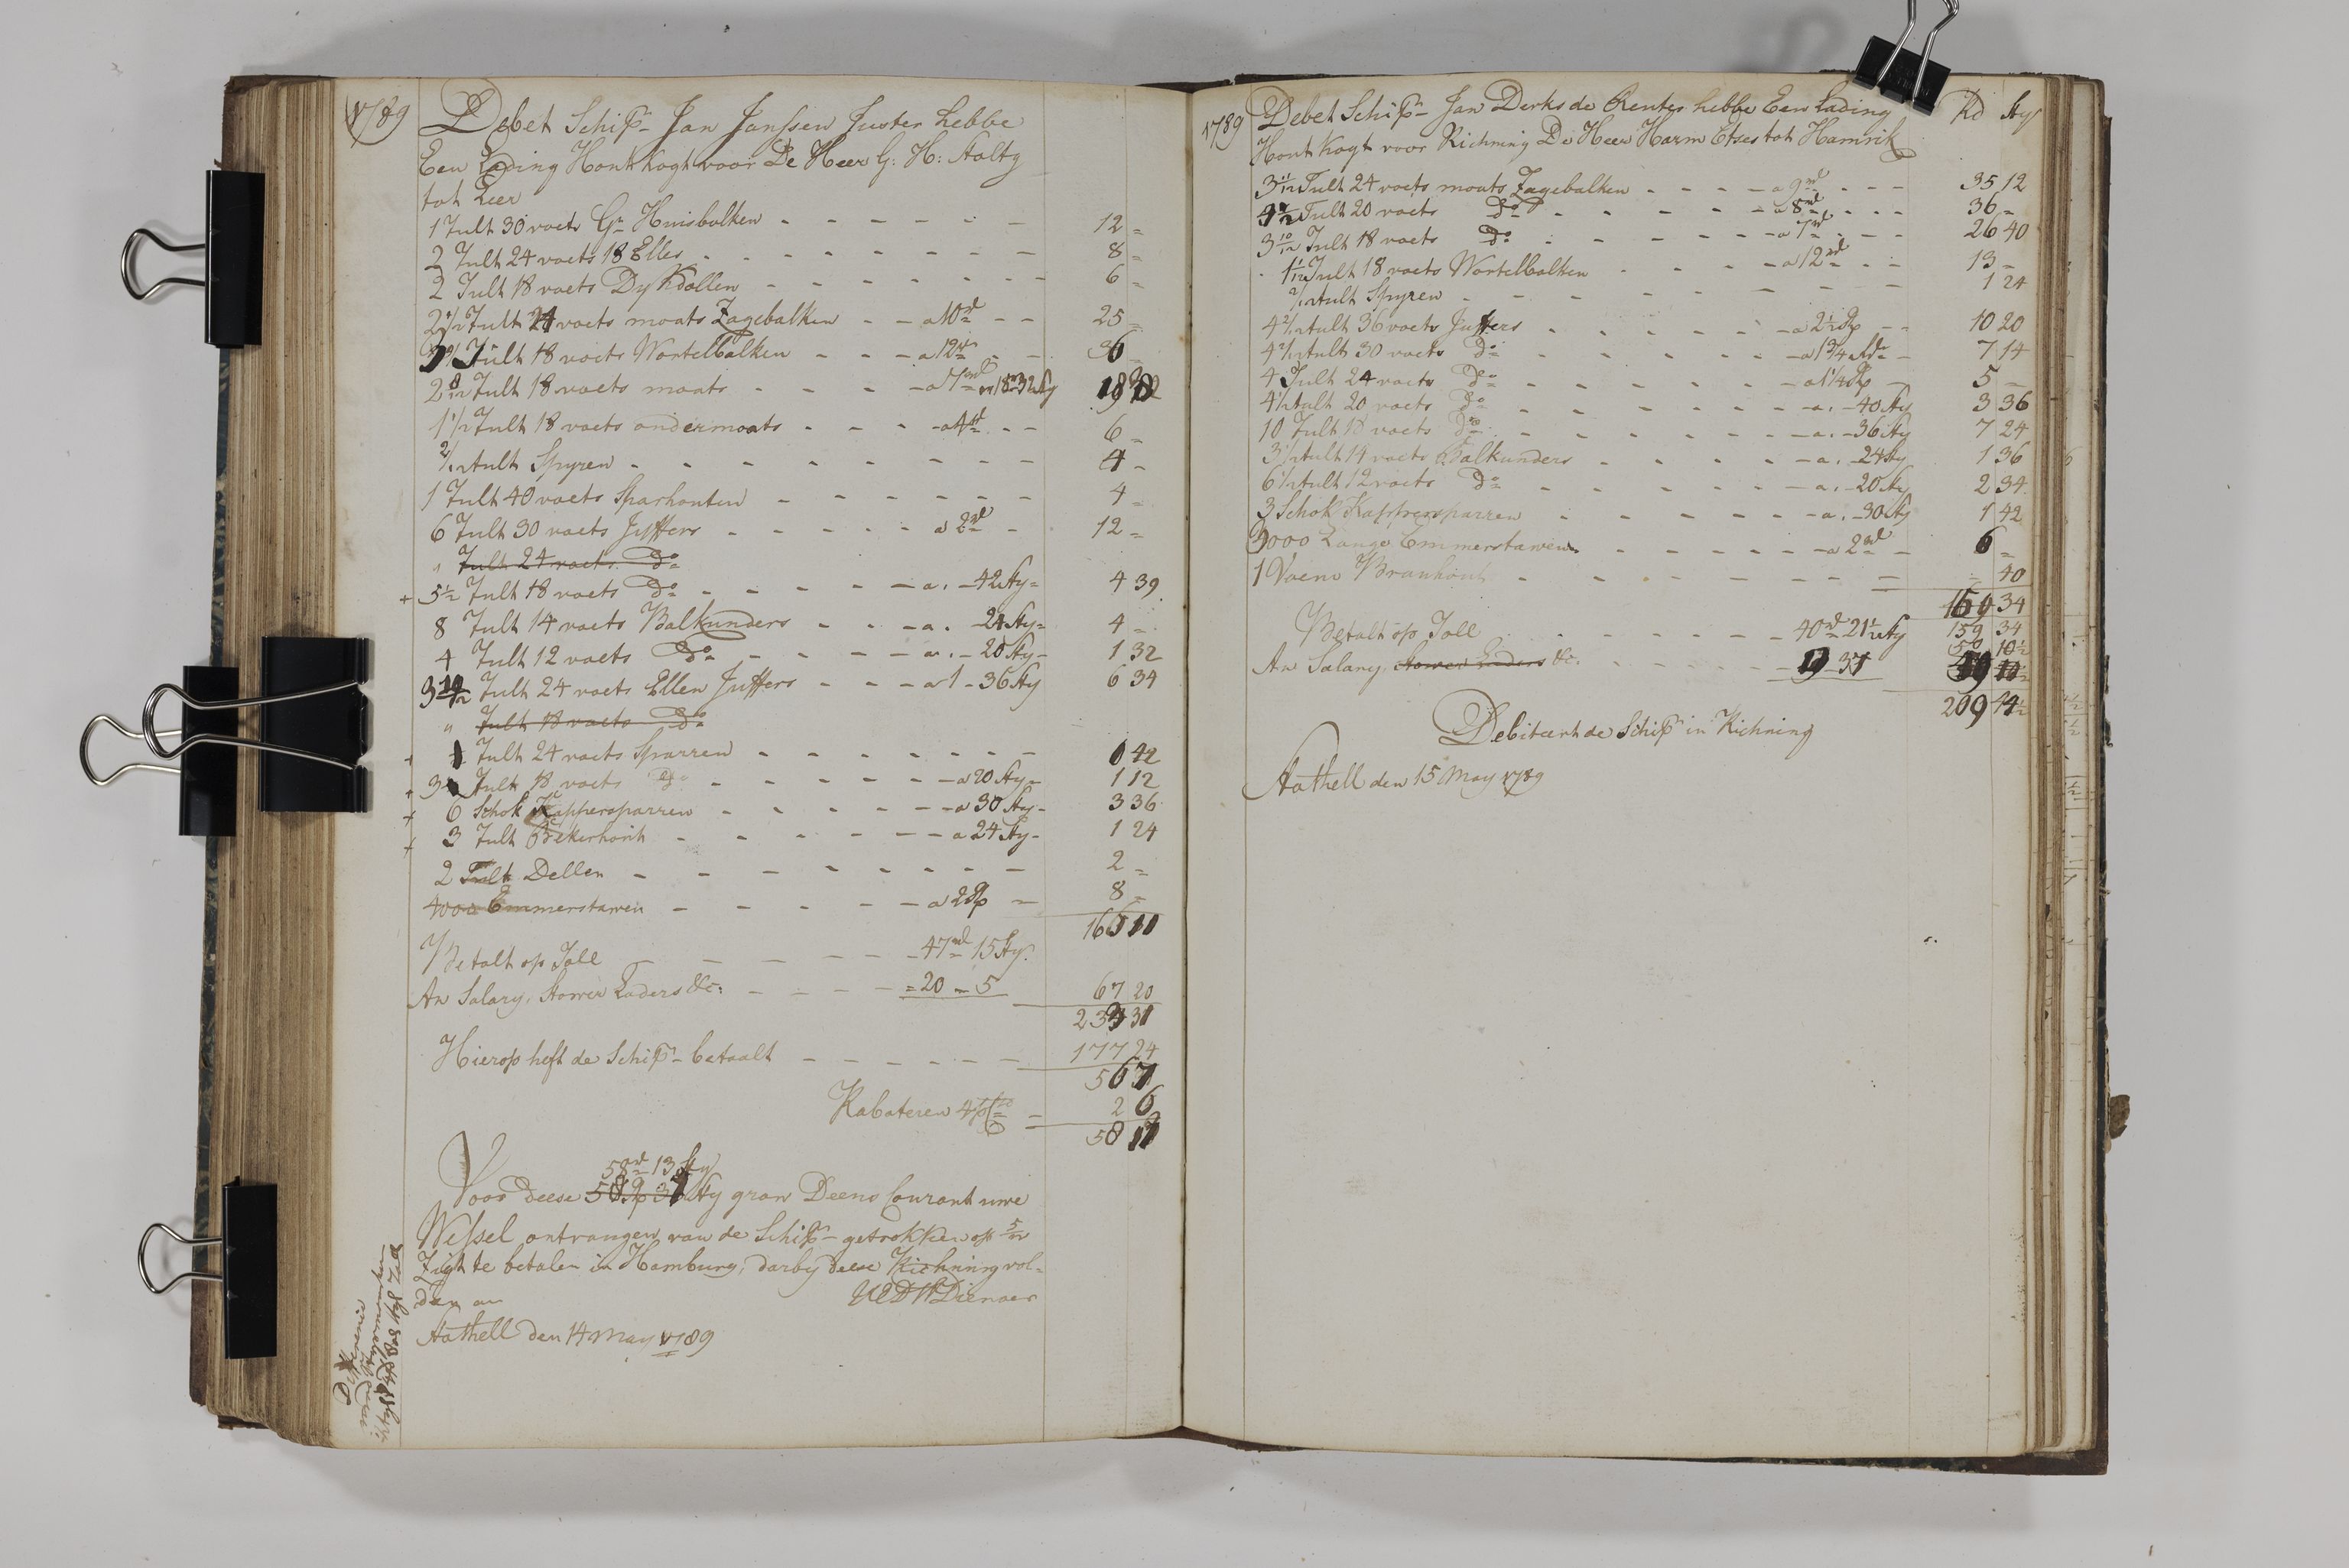 1789
Debet Schipr Jan Janssen Juster hebbe
Een Lading Hont kogt voor De Heer G: H: Holtz
tot Leer
1 Tult 30 voets Gr Huisbalken - - - - - - - 12 =
2 Tult 24 voets 18 Elles - - - - - - - 8 =
2 Tult 18 voets Dykdollen - - - - - - - 6 =
2 1/2 Tult 24 voets moats Zagebalken - - a 10 rd - - 25 =
3 Tult 18 voets Wortelbalken - - - a 12 rd - - 36 =
2 8/12 Tult 18 voets moats - - - - a 7 rd
1 1/2 Tult 18 voets ondermoats - - - - a 4 rd - - 6 =
2/12 Tult Spyren - - - - - - - - 4 -
1 Tult 40 voets Sparhonten - - - - - - - 4 =
6 Tult 30 voets Juffers - - - - - a 2 rd - 12 =
" Tult 24 voets Do
+ 5 1/2 Tult 18 voets Do - - - - - a . - 42 Sty = 4 39
8 Tult 14 voets Balkunders - - - a . - 24 Sty = 4 -
4 Tult 12 voets Do - - - - - a . - 20 Sty - 1 32
3 10/12 Tult 24 voets Ellen Juffers - - - a 1 - 36 Sty 6 34
" Tult 18 voets Do
+ 1 Tult 24 voets Sparren - - - - - - - 0 42
+ 3 Tult 18 voets Do - - - - - - a 20 Sty - 1 12
+ 6 Schok Kappersparren - - - - - - a 30 Sty - 3 36
+ 3 Tult Bekerhont - - - - - - a 24 Sty - 1 24
2 Tult Dellen - - - - - - - - 2 =
4000 Emmerstawen - - - - - a 2 Rp = 8 -
166 11
Betalt op Toll - - - - - - 47 rd 15 Sty
An Salary, Stower Laders &c: - - - - = 20 - 5 67 20
233 31
Hierop heft de Schipr betaalt - - - - - - 177 24
56 7
Rabateren 4 p Co = 2 6
58 13
58 rd 13 Sty
Voor deese Sty grow Deens Courant une
Wissel ontvangen van de Schipr getrokken op
Zigt te betalen in Hamburg, darby deese Richning vol-
dan an UEDWDienaer
Stathell den 14 May 1789
1789
Debet Schipr Jan Derks de Rentes hebbe Een Lading Rd Sty
Hont kogt voor Richning De Heer Harm Etses tot Hamrik
3 11/12 Tult 24 voets moats Zagebalken - - - - a 9 rd - - - 35 12
4 1/2 Tult 20 voets Do - - - - - a 8 rd - - - 36 =
3 10/12 Tult 18 voets Do - - - - - a 7 rd - - - 26 40
1 1/12 Tult 18 voets Wortelbalken - - - - a 12 rd - - 13 -
2/12 Tult Spyren - - - - - - - - 1 24
4 2/12 Tult 36 voets Juffers - - - - - a 2 1/2 Rp - - 10 20
4 2/12 Tult 30 voets Do - - - - - - a 1 3/4 Rdr - 7 14
4 Tult 24 voets Do - - - - - - a 1 1/4 Rp - 5 -
4 1/2 Tult 20 voets Do - - - - - - a . - 40 Sty 3 36
10 Tult 18 voets Do - - - - - - a . - 36 Sty 7 24
3 1/2 Tult 14 voets Balkunders - - - - a . - 24 Sty 1 36
6 1/2 Tult 12 voets Do - - - - - a . - 20 Sty 2 34
3 Schok Kappersparren - - - - - a . - 30 Sty 1 42
3000 Lange Emmerstawen - - - - - - a 2 rd - 6 =
1 Vaem Branhout - - - - - - - - = 40
159 34
Betalt op Toll - - - - - - 40 rd 21 1/2 Sty 159 34
An Salary, Stower Laders &c. - - - - - - 9 - 37 50 10 1/2
209 44 1/2
Debiteert de Schipr in Richning
Stathell den 15 May 1789